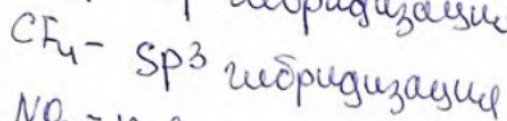 гибридизация
CF₄ - sp³ гибридизация
NO₂ -